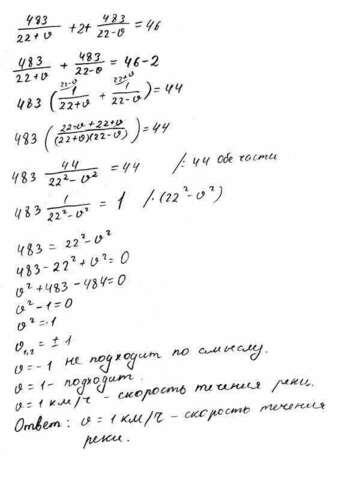 483/(22+v) + 2 + 483/(22-v) = 46
483/(22+v) + 483/(22-v) = 46-2
483 (1/(22+v) + 1/(22-v)) = 44
483 ((22-v+22+v)/((22+v)(22-v))) = 44
483 44/(22²-v²) = 44 /: 44 обе части
483 1/(22²-v²) = 1 /·(22²-v²)
483 = 22²-v²
483-22²+v² = 0
v²+483-484=0
v²-1=0
v²=1
v₁,₂ = ±1
v=-1 не подходит по смыслу.
v=1- подходит.
v=1 км/ч - скорость течения реки.
Ответ: v=1 км/ч - скорость течения
реки.